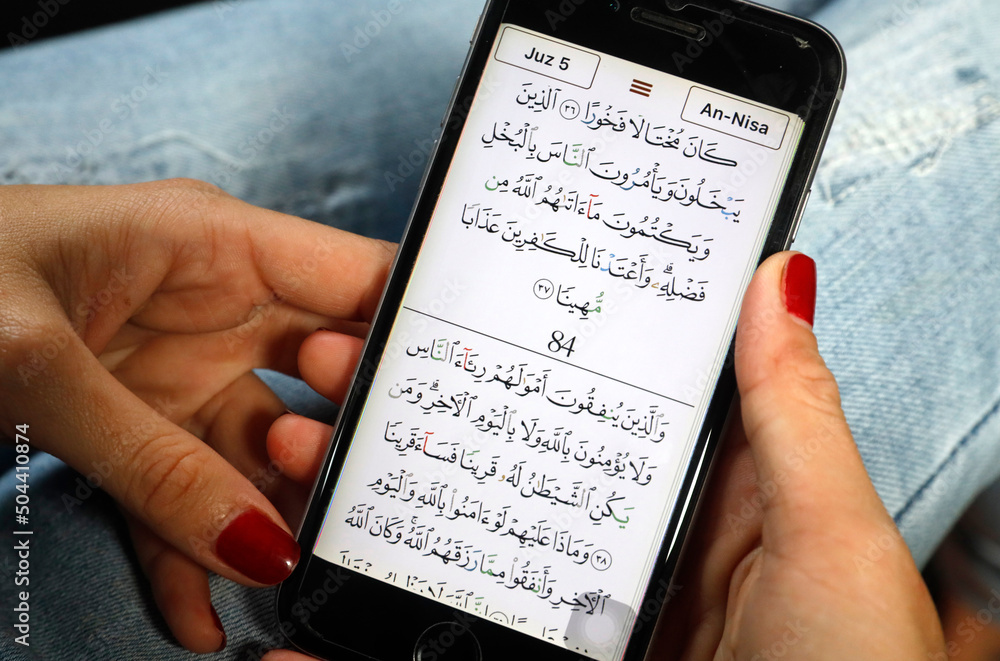 Juz 5
An-Nisa
كَانَ مُخْتَالًا فَخُورًا ٣٦ ٱلَّذِينَ
يَبْخَلُونَ وَيَأْمُرُونَ ٱلنَّاسَ بِٱلْبُخْلِ
وَيَكْتُمُونَ مَآ ءَاتَىٰهُمُ ٱللَّهُ مِن
فَضْلِهِۦ ۗ وَأَعْتَدْنَا لِلْكَـٰفِرِينَ عَذَابًا
مُّهِينًا ٣٧
84
وَٱلَّذِينَ يُنفِقُونَ أَمْوَٰلَهُمْ رِئَآءَ ٱلنَّاسِ
وَلَا يُؤْمِنُونَ بِٱللَّهِ وَلَا بِٱلْيَوْمِ ٱلْـَٔاخِرِ ۗ وَمَن
يَكُنِ ٱلشَّيْطَـٰنُ لَهُۥ قَرِينًا فَسَآءَ قَرِينًا
٣٨ وَمَاذَا عَلَيْهِمْ لَوْ ءَامَنُوا۟ بِٱللَّهِ وَٱلْيَوْمِ
ٱلْـَٔاخِرِ وَأَنفَقُوا۟ مِمَّا رَزَقَهُمُ ٱللَّهُ ۚ وَكَانَ ٱللَّهُ
Adobe Stock | #504410874